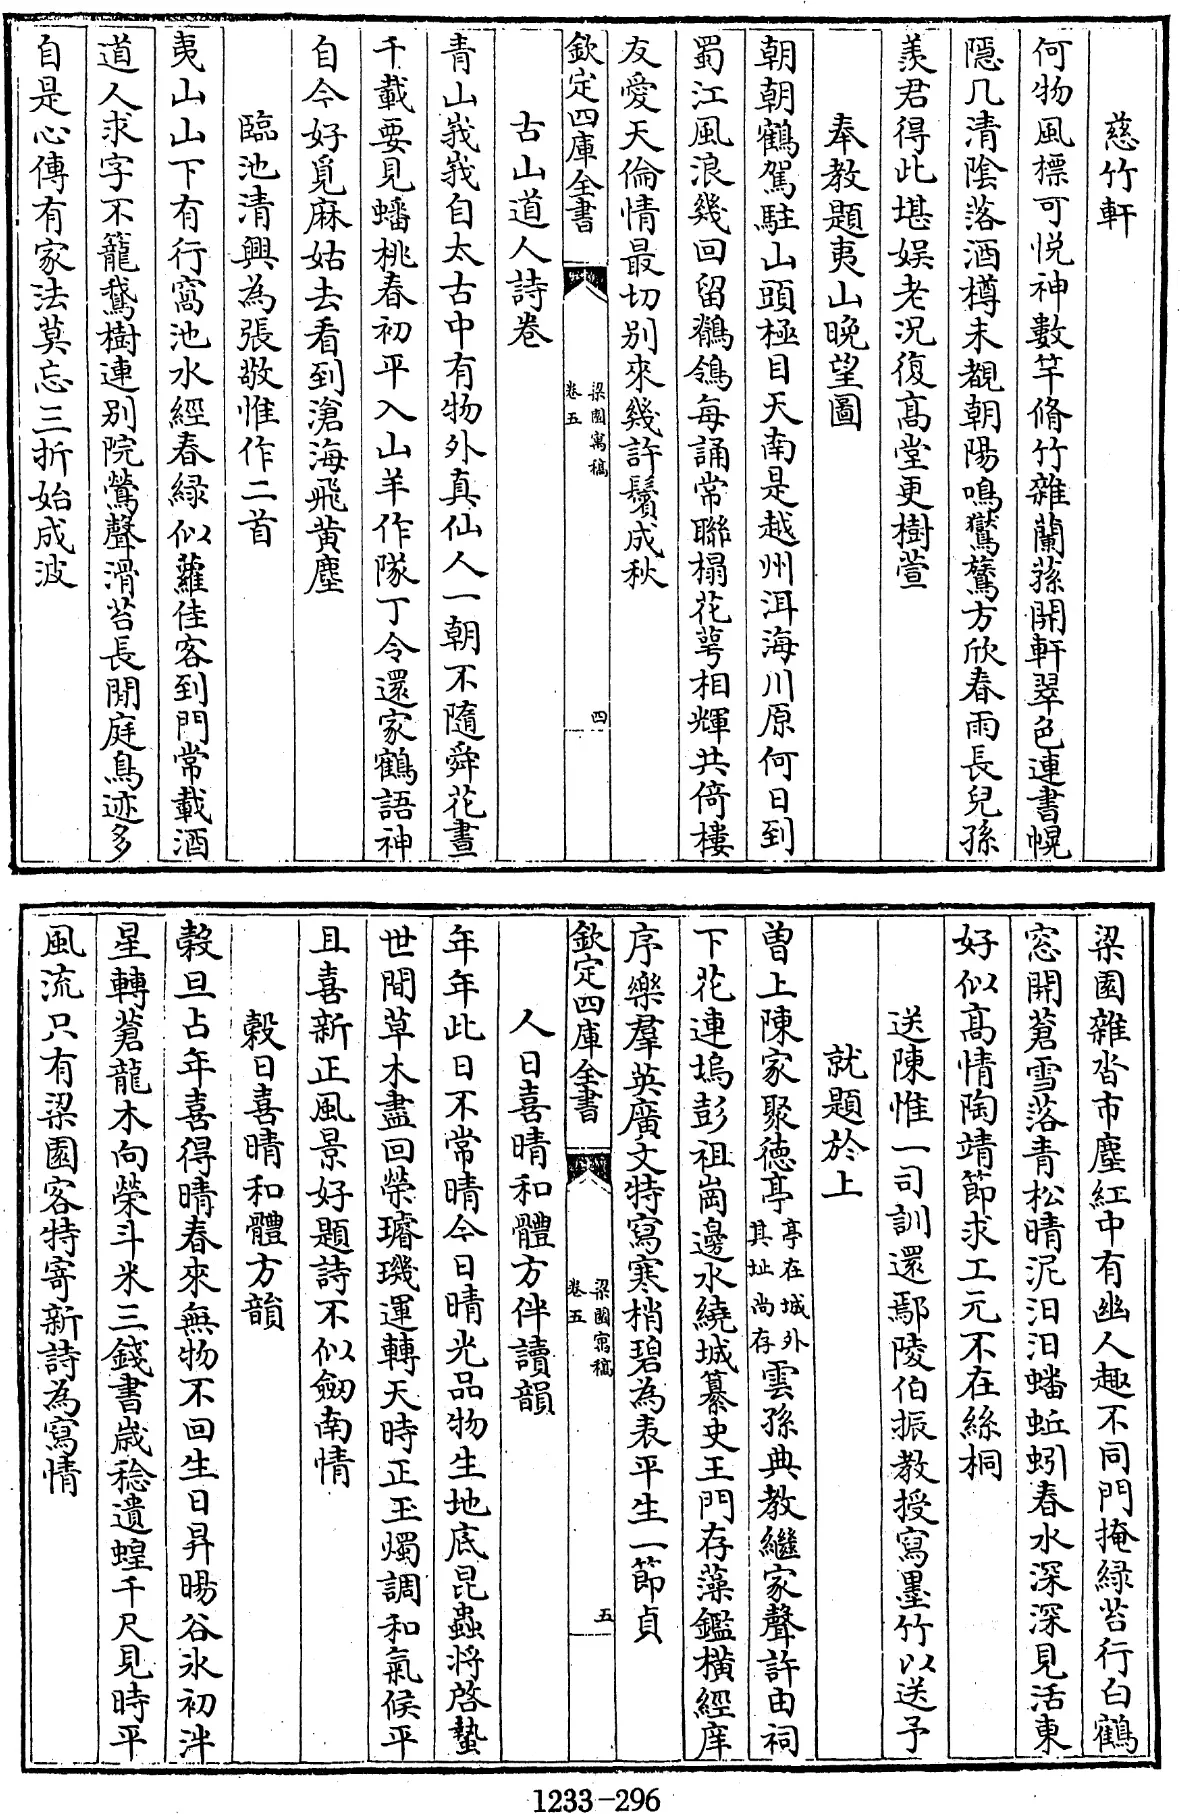 慈竹軒
何物風標可悦神數竿脩竹雜蘭蓀開軒翠色連書幌
隠几清陰落酒樽未覩朝陽鳴鸑鷟方欣春雨長兒孫
羨君得此堪娱老况復髙堂更樹萱
奉教題夷山晚望圖
朝朝鶴駕駐山頭極目天南是越州洱海川原何日到
蜀江風浪幾回留鶺鴒每誦常聯榻花萼相輝共倚樓
友愛天倫情最切别來幾許鬢成秋
欽定四庫全書
梁園寓稿
卷五
四
古山道人詩卷
青山峩峩自太古中有物外真仙人一朝不隨舜花晝
千載要見蟠桃春初平入山羊作隊丁令還家鶴語神
自今好覓麻姑去看到滄海飛黄塵
臨池清興為張敬惟作二首
夷山山下有行窩池水經春緑似蘿佳客到門常載酒
道人求字不籠鵞樹連别院鶯聲滑苔長閒庭鳥迹多
自是心傳有家法莫忘三折始成波
梁園雜沓市塵紅中有幽人趣不同門掩緑苔行白鶴
窓開蒼雪落青松晴泥汩汩蟠蚯蚓春水深深見活東
好似髙情陶靖節求工元不在絲桐
送陳惟一司訓還鄢陵伯振教授寫墨竹以送予
就題於上
曽上陳家聚徳亭亭在城外其址尚存雲孫典教繼家聲許由祠
下花連塢彭祖崗邊水繞城纂史王門存藻鑑横經庠
序樂羣英廣文特寫寒梢碧為表平生一節貞
欽定四庫全書
梁園寓稿
卷五
五
人日喜晴和體方伴讀韻
年年此日不常晴今日晴光品物生地底昆蟲將啓蟄
世間草木盡回榮璿璣運轉天時正玉燭調和氣候平
且喜新正風景好題詩不似劒南情
榖日喜晴和體方韻
榖旦占年喜得晴春來無物不回生日昇暘谷氷初泮
星轉蒼龍木向榮斗米三錢書歳稔遺蝗千尺見時平
風流只有梁園客特寄新詩為寫情
1233-296